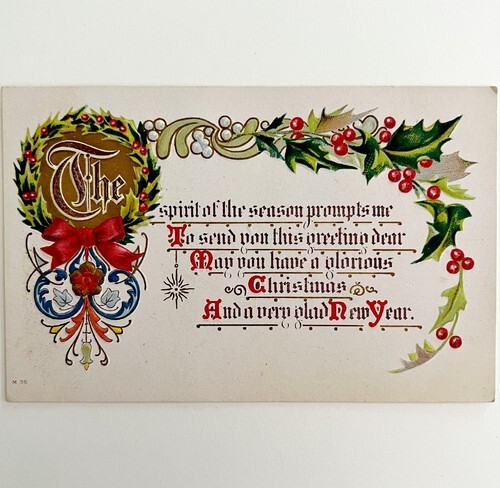 The
spirit of the season prompts me
To send you this greeting dear
May you have a glorious
Christmas
And a very glad New Year.